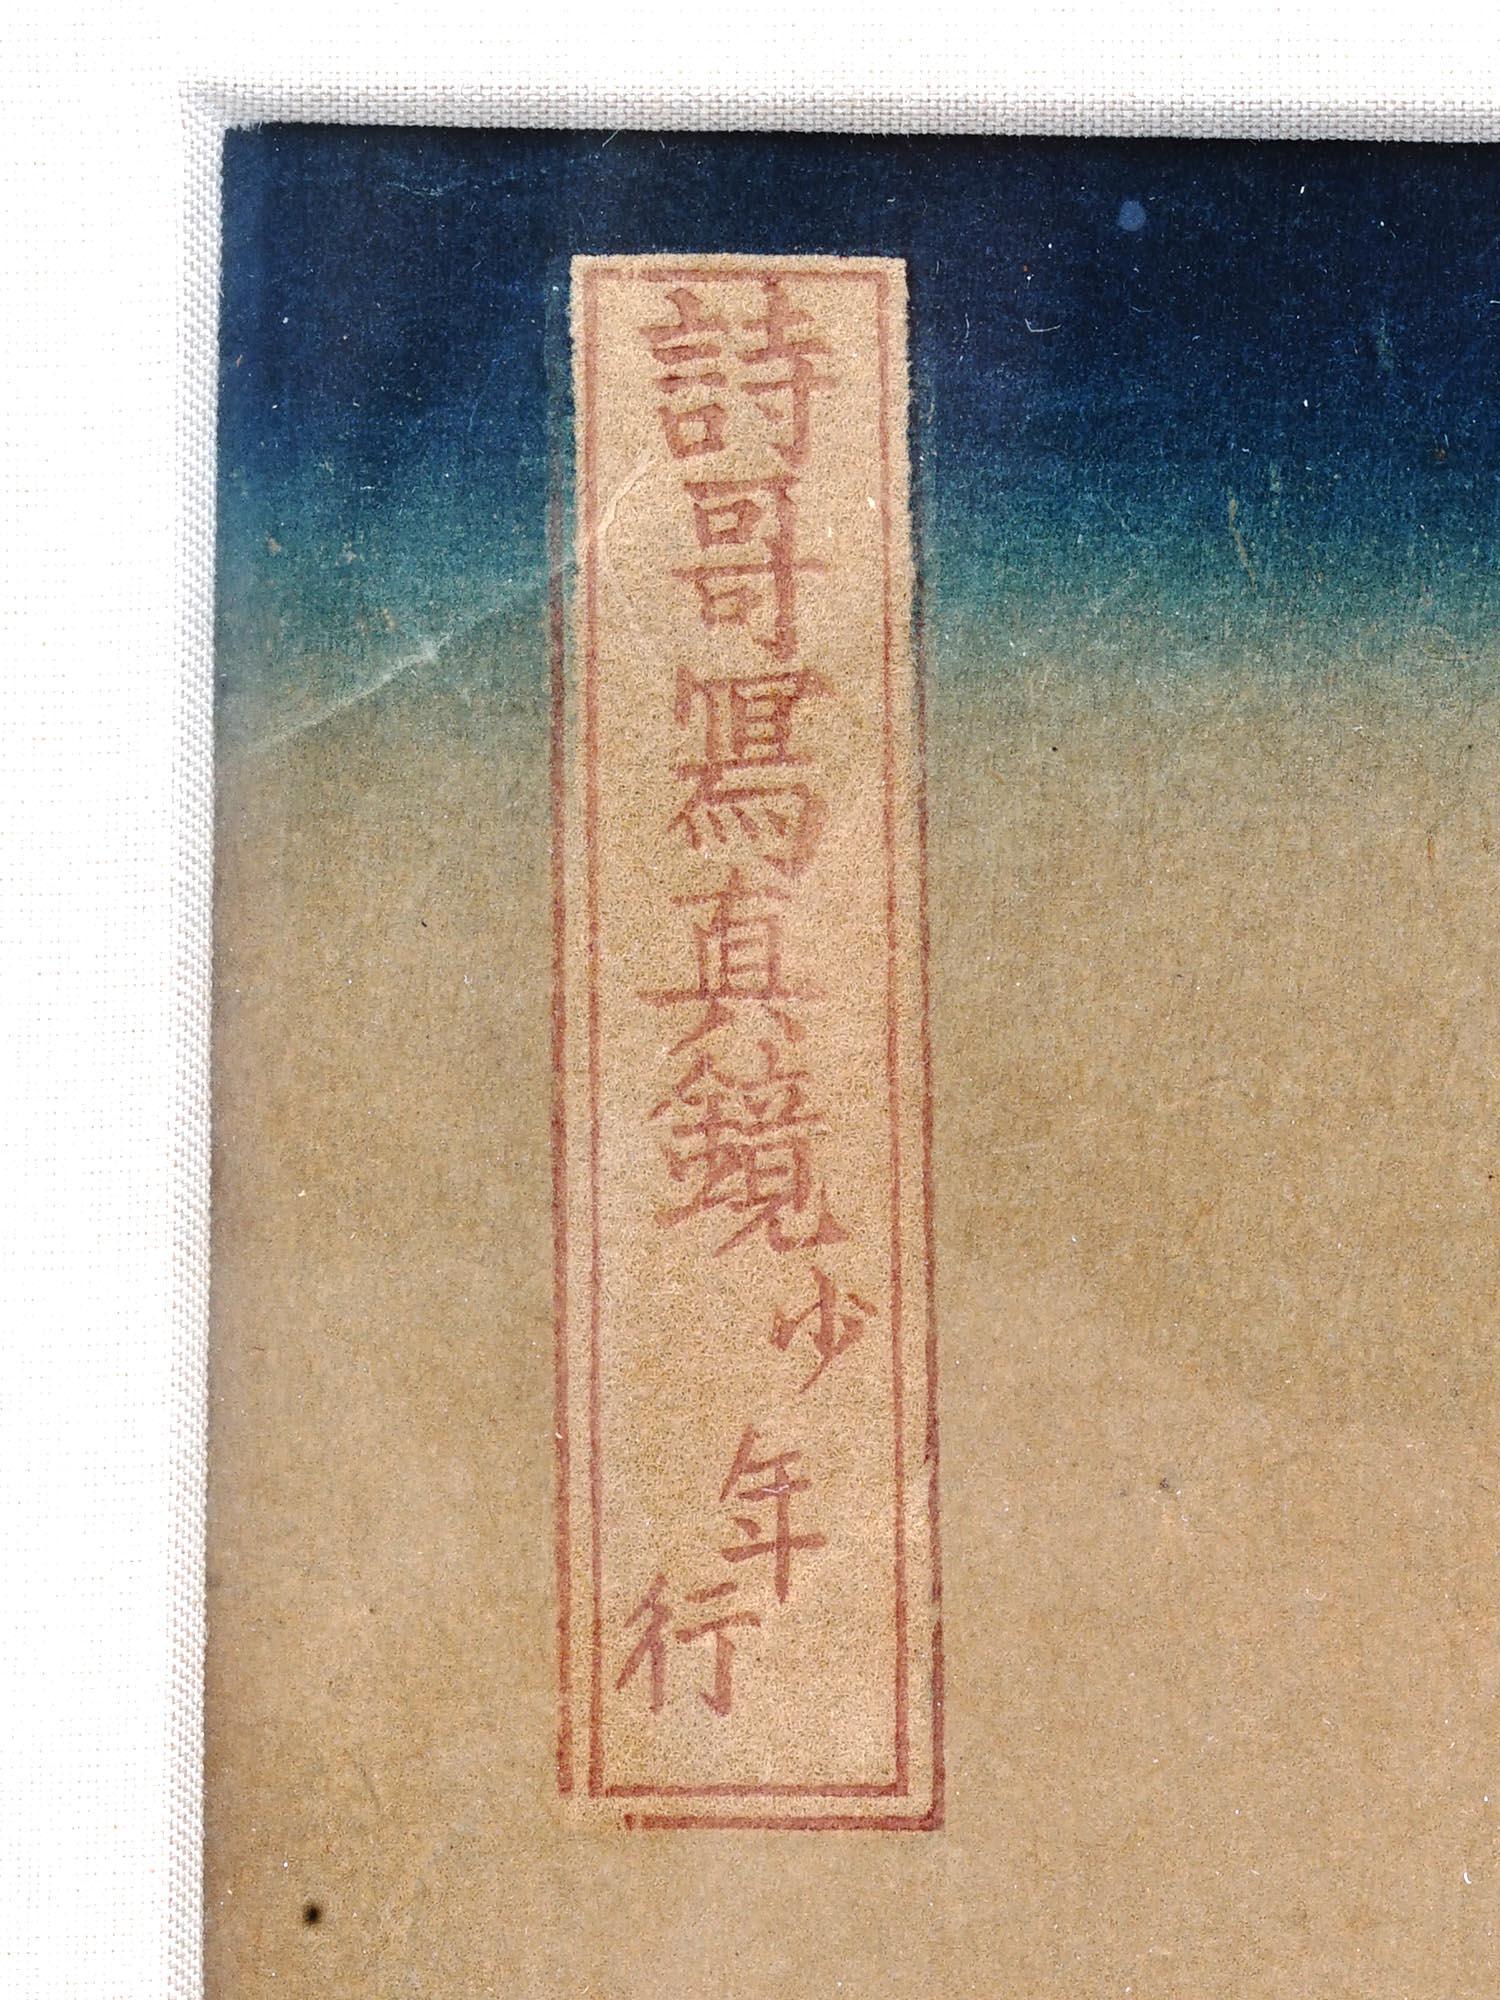 詩哥寫真鏡 少年行